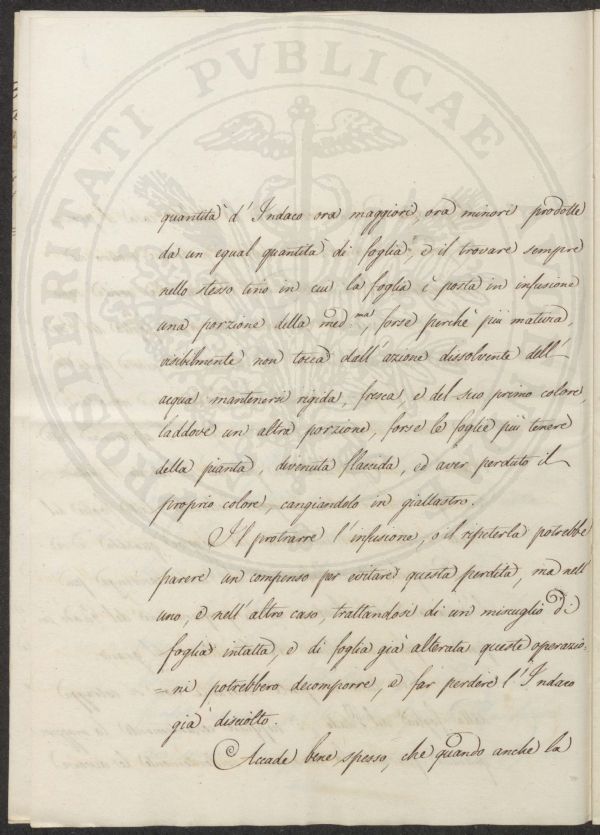 PROSPERITATI PVBLICAE
quantità d'Indaco ora maggiori, ora minori prodotte
da un egual quantità di foglia, e il trovare sempre
nello stesso tino in cui la foglia è posta in infusione
una porzione della med.ma, forse perchè più matura,
visibilmente non tocca dall'azione dissolvente dell'
acqua mantenersi rigida, fresca, e del suo primo colore,
laddove un altra porzione, forse le foglie più tenere
della pianta, divenuta flaccida, ed aver perduto il
proprio colore, cangiandolo in giallastro.
Il protrarre l'infusione, o il ripeterla potrebbe
parere un compenso per evitare questa perdita, ma nell'
uno, e nell'altro caso, trattandosi di un miscuglio di
foglia intatta, e di foglia già alterata queste operazio-
=ni potrebbero decomporre, e far perdere l'Indaco
già disciolto.
Accade bene spesso, che quando anche la